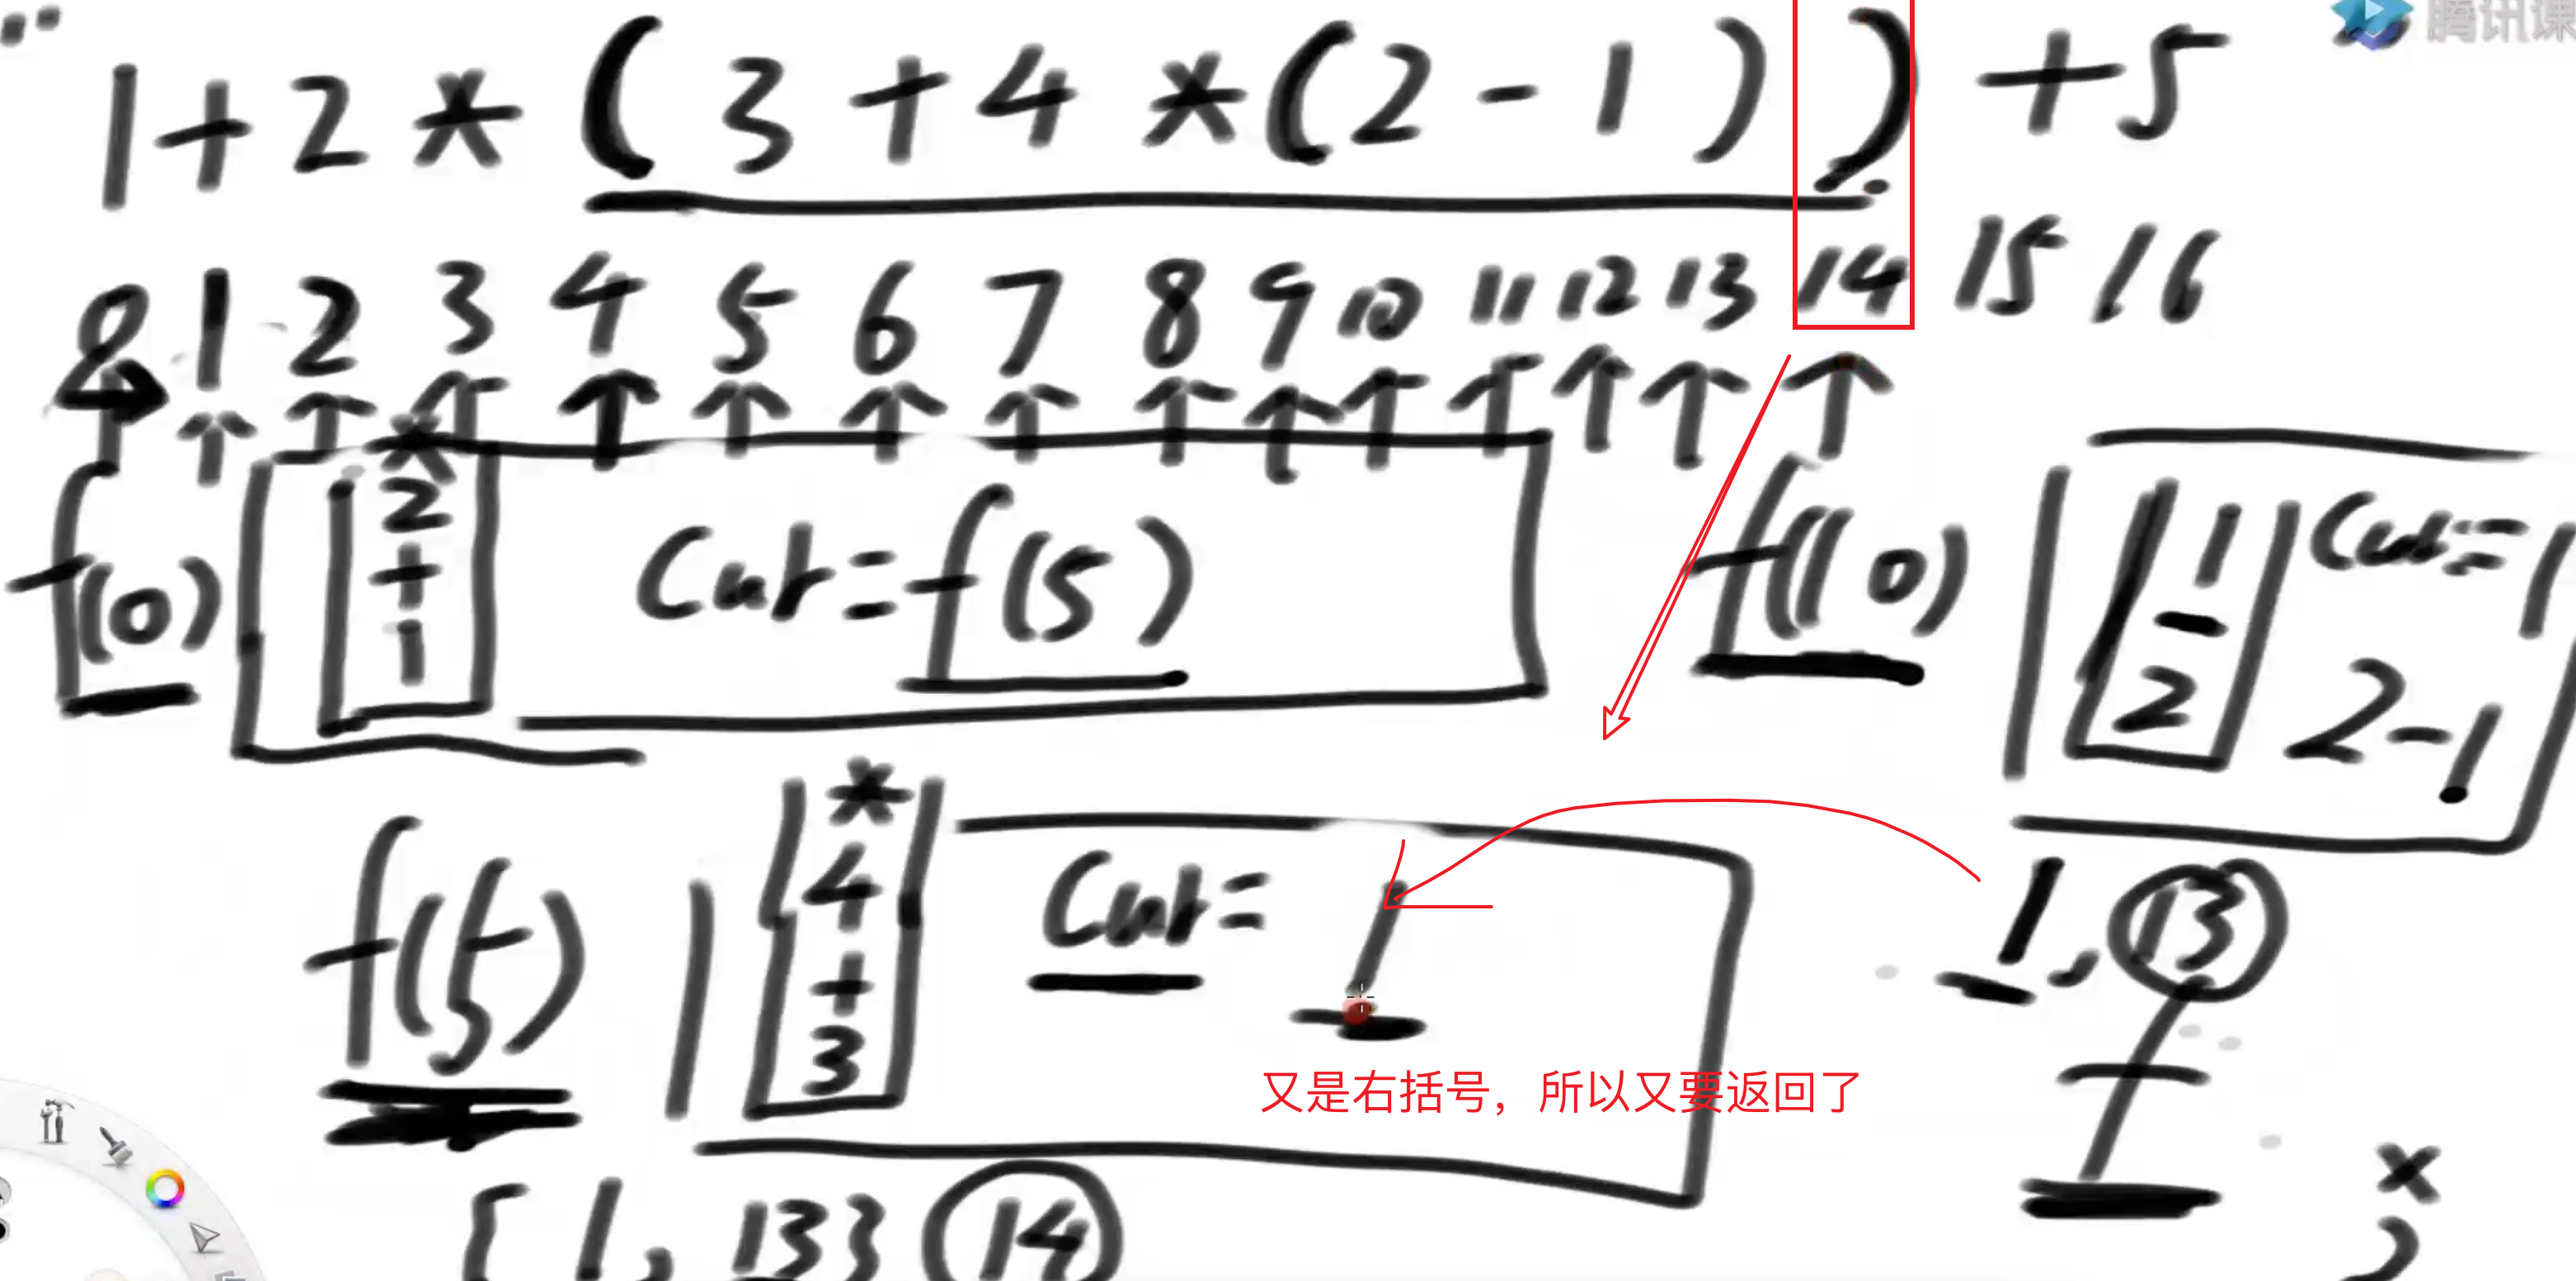 腾讯课
1+2*(3+4*(2-1))+5
0 1 2 3 4 5 6 7 8 9 10 11 12 13 14 15 16
f(0)
*
2
+
1
Cur=f(5)
f(10)
1
-
2
Cur=1
2-1
f(5)
*
4
+
3
Cur=1
1, 13
又是右括号，所以又要返回了
{1, 13} 14